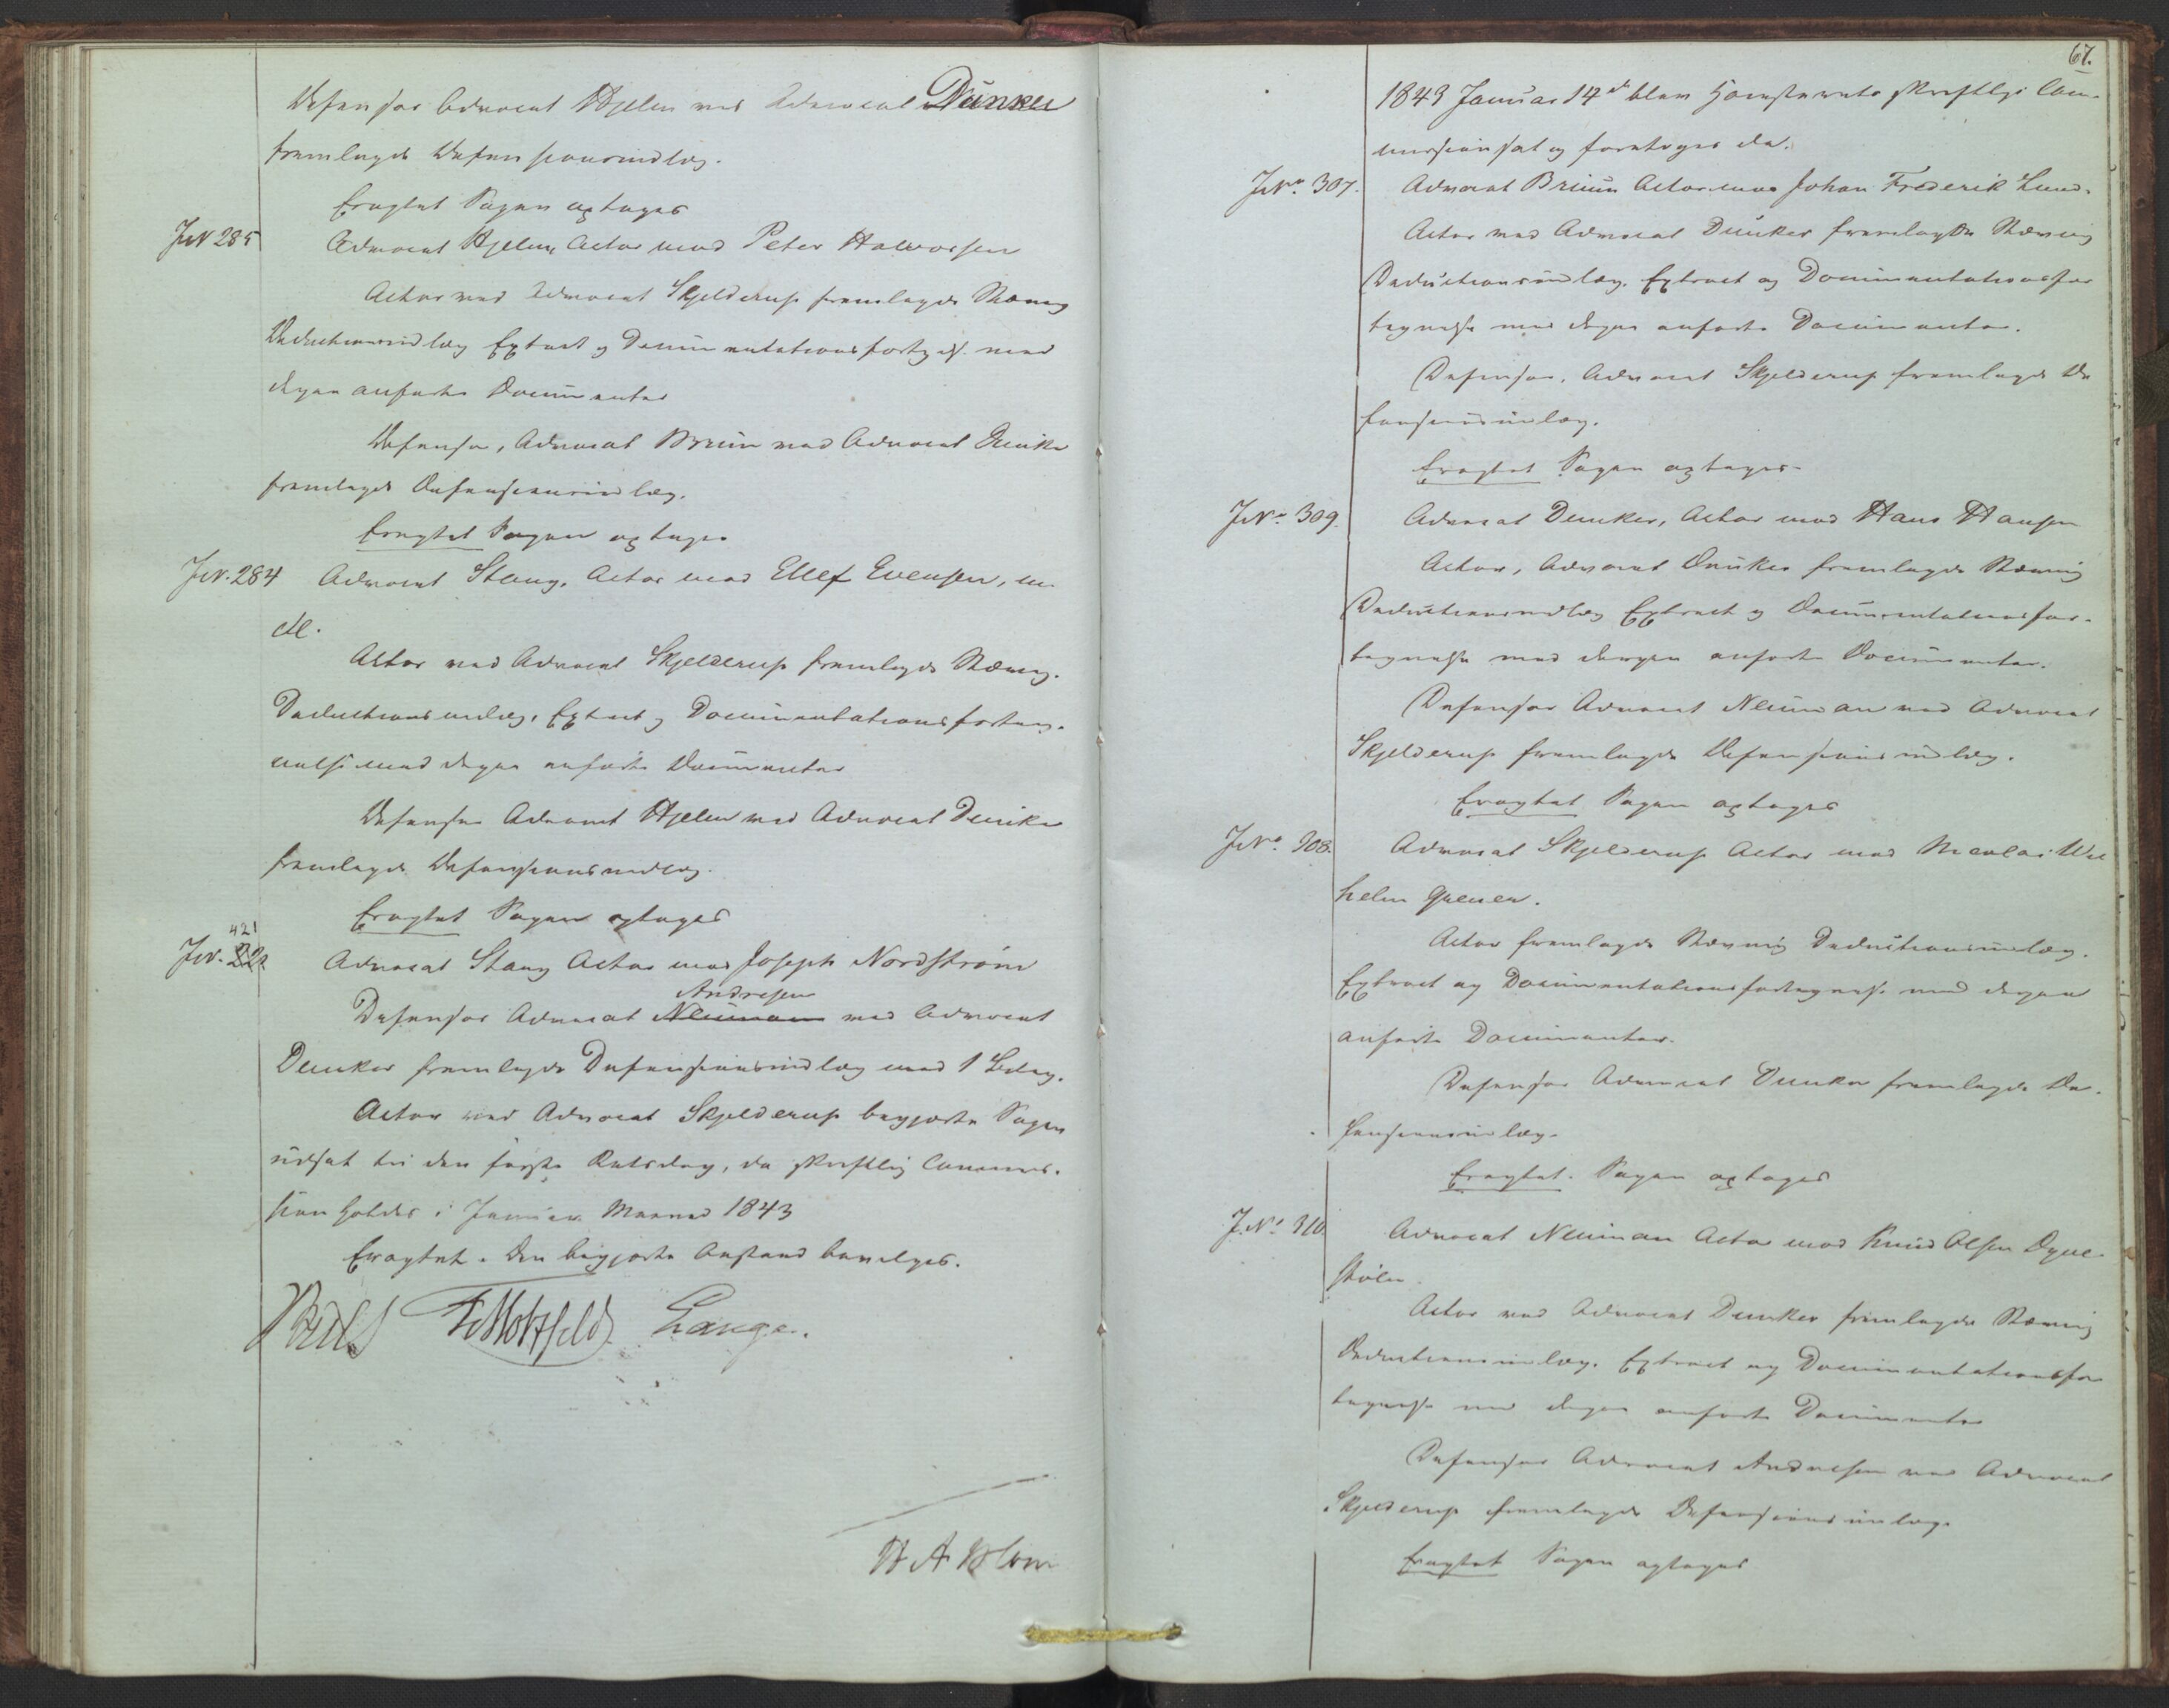 Defensor Advocat Hjelm ved Advocat Dunker
fremlagde Defensionsindlæg.
Eragtet Sagen optages
JN 285
Advocat Hjelm, Actor mod Peter Halvorsen
Actor ved Advocat Skjelderup fremlagde Stævning
Deductionsindlæg Extract og Documentationsfortegnelse med
deri anførte Documenter
Defensor, Advocat Bruun ved Advocat Dunker
fremlagde Defensionsindlæg.
Eragtet Sagen optages
JN. 284 Advocat Stang, Actor mod Ellef Evensen, m
fl.
Actor ved Advocat Skjelderup fremlagde Stævning.
Deductionsindlæg, Extract og Documentationsforteg-
nelse med deri anførte Documenter
Defensor Advocat Hjelm ved Advocat Dunker
fremlagde Defensionsindlæg.
Eragtet Sagen optages
421
JN. 222 Advocat Stang Actor mod Joseph Nordstrøm
Andresen
Defensor Advocat Neuman ved Advocat
Dunker fremlagde Defensionsindlæg med 1 Bilag.
Actor ved Advocat Skjelderup begjærte Sagen
udsat til den første Retsdag, da skriftlig Commis-
sion holdes i Januar Maaned 1843
Eragtet. Den begjærte Anstand bevilges.
FMotzfeldt Lange.
H A Blom
67.
1843 Januar 14de blev Høiesterets skriftlige Com-
mission sat og foretoges da.
JNo. 307.
Advocat Bruun Actor mod Johan Frederik Lund.
Actor ved Advocat Dunker fremlagde Stævning
Deductionsindlæg, Extract og Documentationsfor
tegnelse med deri anførte Documenter.
Defensor, Advocat Skjelderup fremlagde De
fensionsindlæg.
Eragtet Sagen optages.
JNo. 309.
Advocat Dunker, Actor mod Hans Hansen
Actor, Advocat Dunker fremlagde Stævning
Deductionsindlæg Extract og Documentationsfor-
tegnelse med deri anførte Documenter.
Defensor Advocat Neuman ved Advocat
Skjelderup fremlagde Defensionsindlæg.
Eragtet Sagen optages
JNo. 308.
Advocat Skjelderup Actor mod Nicolai Wil
helm
Actor fremlagde Stævning Deductionsindlæg.
Extract og Documentationsfortegnelse med deri
anførte Documenter.
Defensor Advocat Dunker fremlagde De-
fensionsindlæg.
Eragtet. Sagen optages
J.No. 310.
Advocat Neuman Actor mod Knud Olsen
Actor ved Advocat Dunker fremlagde Stævning
Deductionsindlæg. Extract og Documentationsfor
tegnelse med deri anførte Documenter
Defensor Advocat Andresen ved Advocat
Skjelderup fremlagde Defensionsindlæg
Eragtet Sagen optages